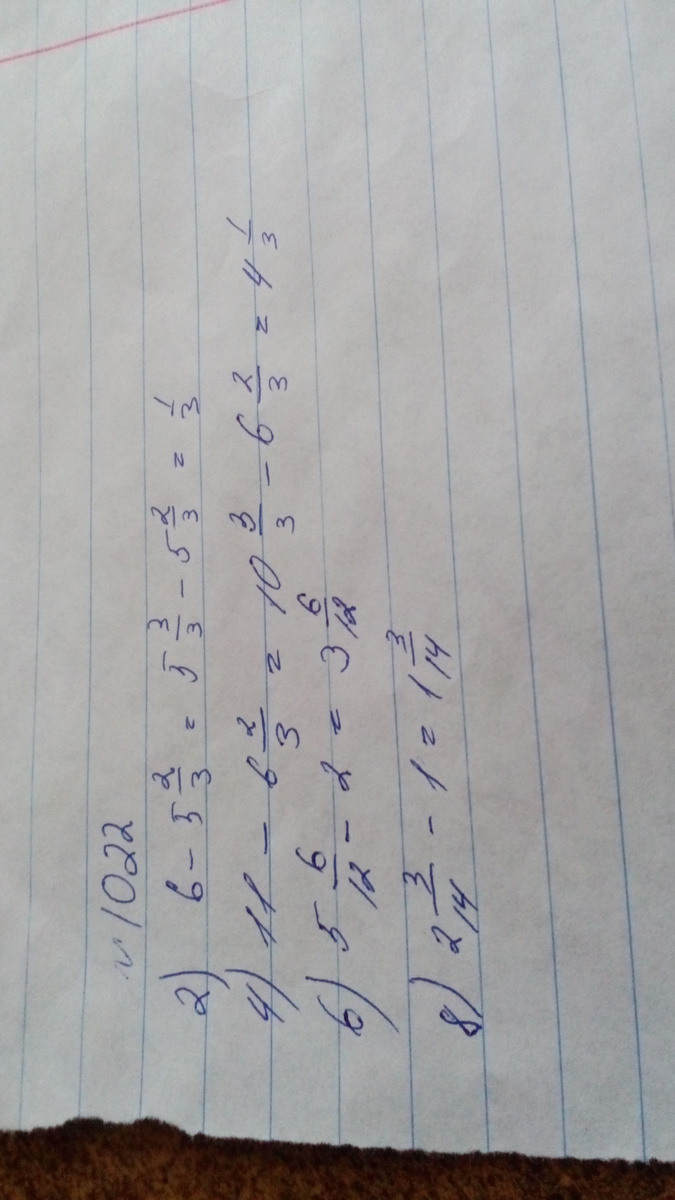 № 1022
2) 6 - 5 2/3 = 5 3/3 - 5 2/3 = 1/3
4) 11 - 6 2/3 = 10 3/3 - 6 2/3 = 4 1/3
6) 5 6/12 - 2 = 3 6/12
8) 2 3/14 - 1 = 1 3/14